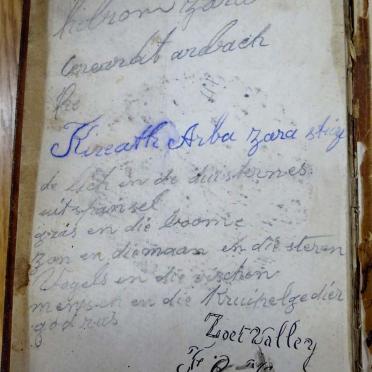 hebrom zara
arbach
Kireath Arba zara
de lich en de duisternes
uitspansel
gras en die boome
zon en die maan en die steren
Vogels en die vischen
mensen en die Kruipelgedier
god rus
Zoet Valley